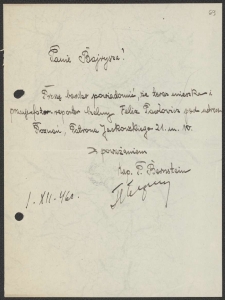 63
Panie Bajrysz!
Proszę bardzo powiadomić, że teraz mieszka
reporter Felix Pawłowicz pod adresem
Poznań, Patrona Jackowskiego 21. m. 10.
Z poważaniem
P. Bernstein
1. XII. 46 r.